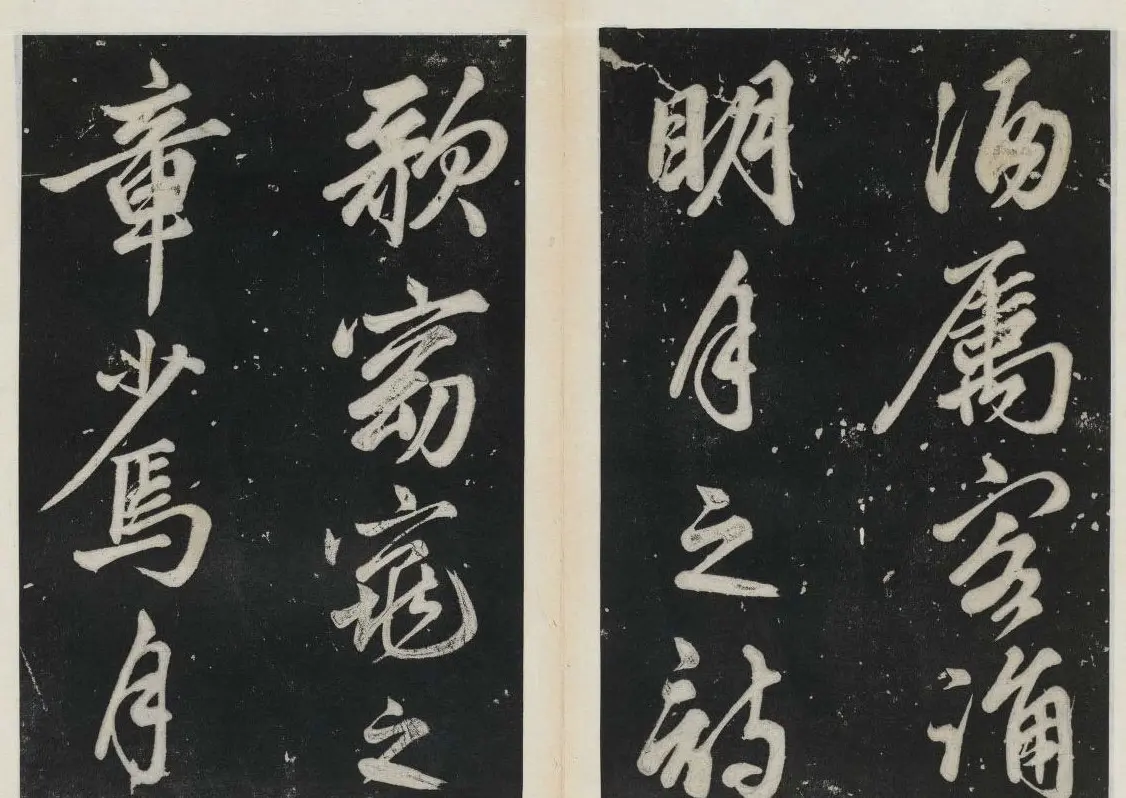 酒属客诵
明月之诗
歌窈窕之
章少焉月